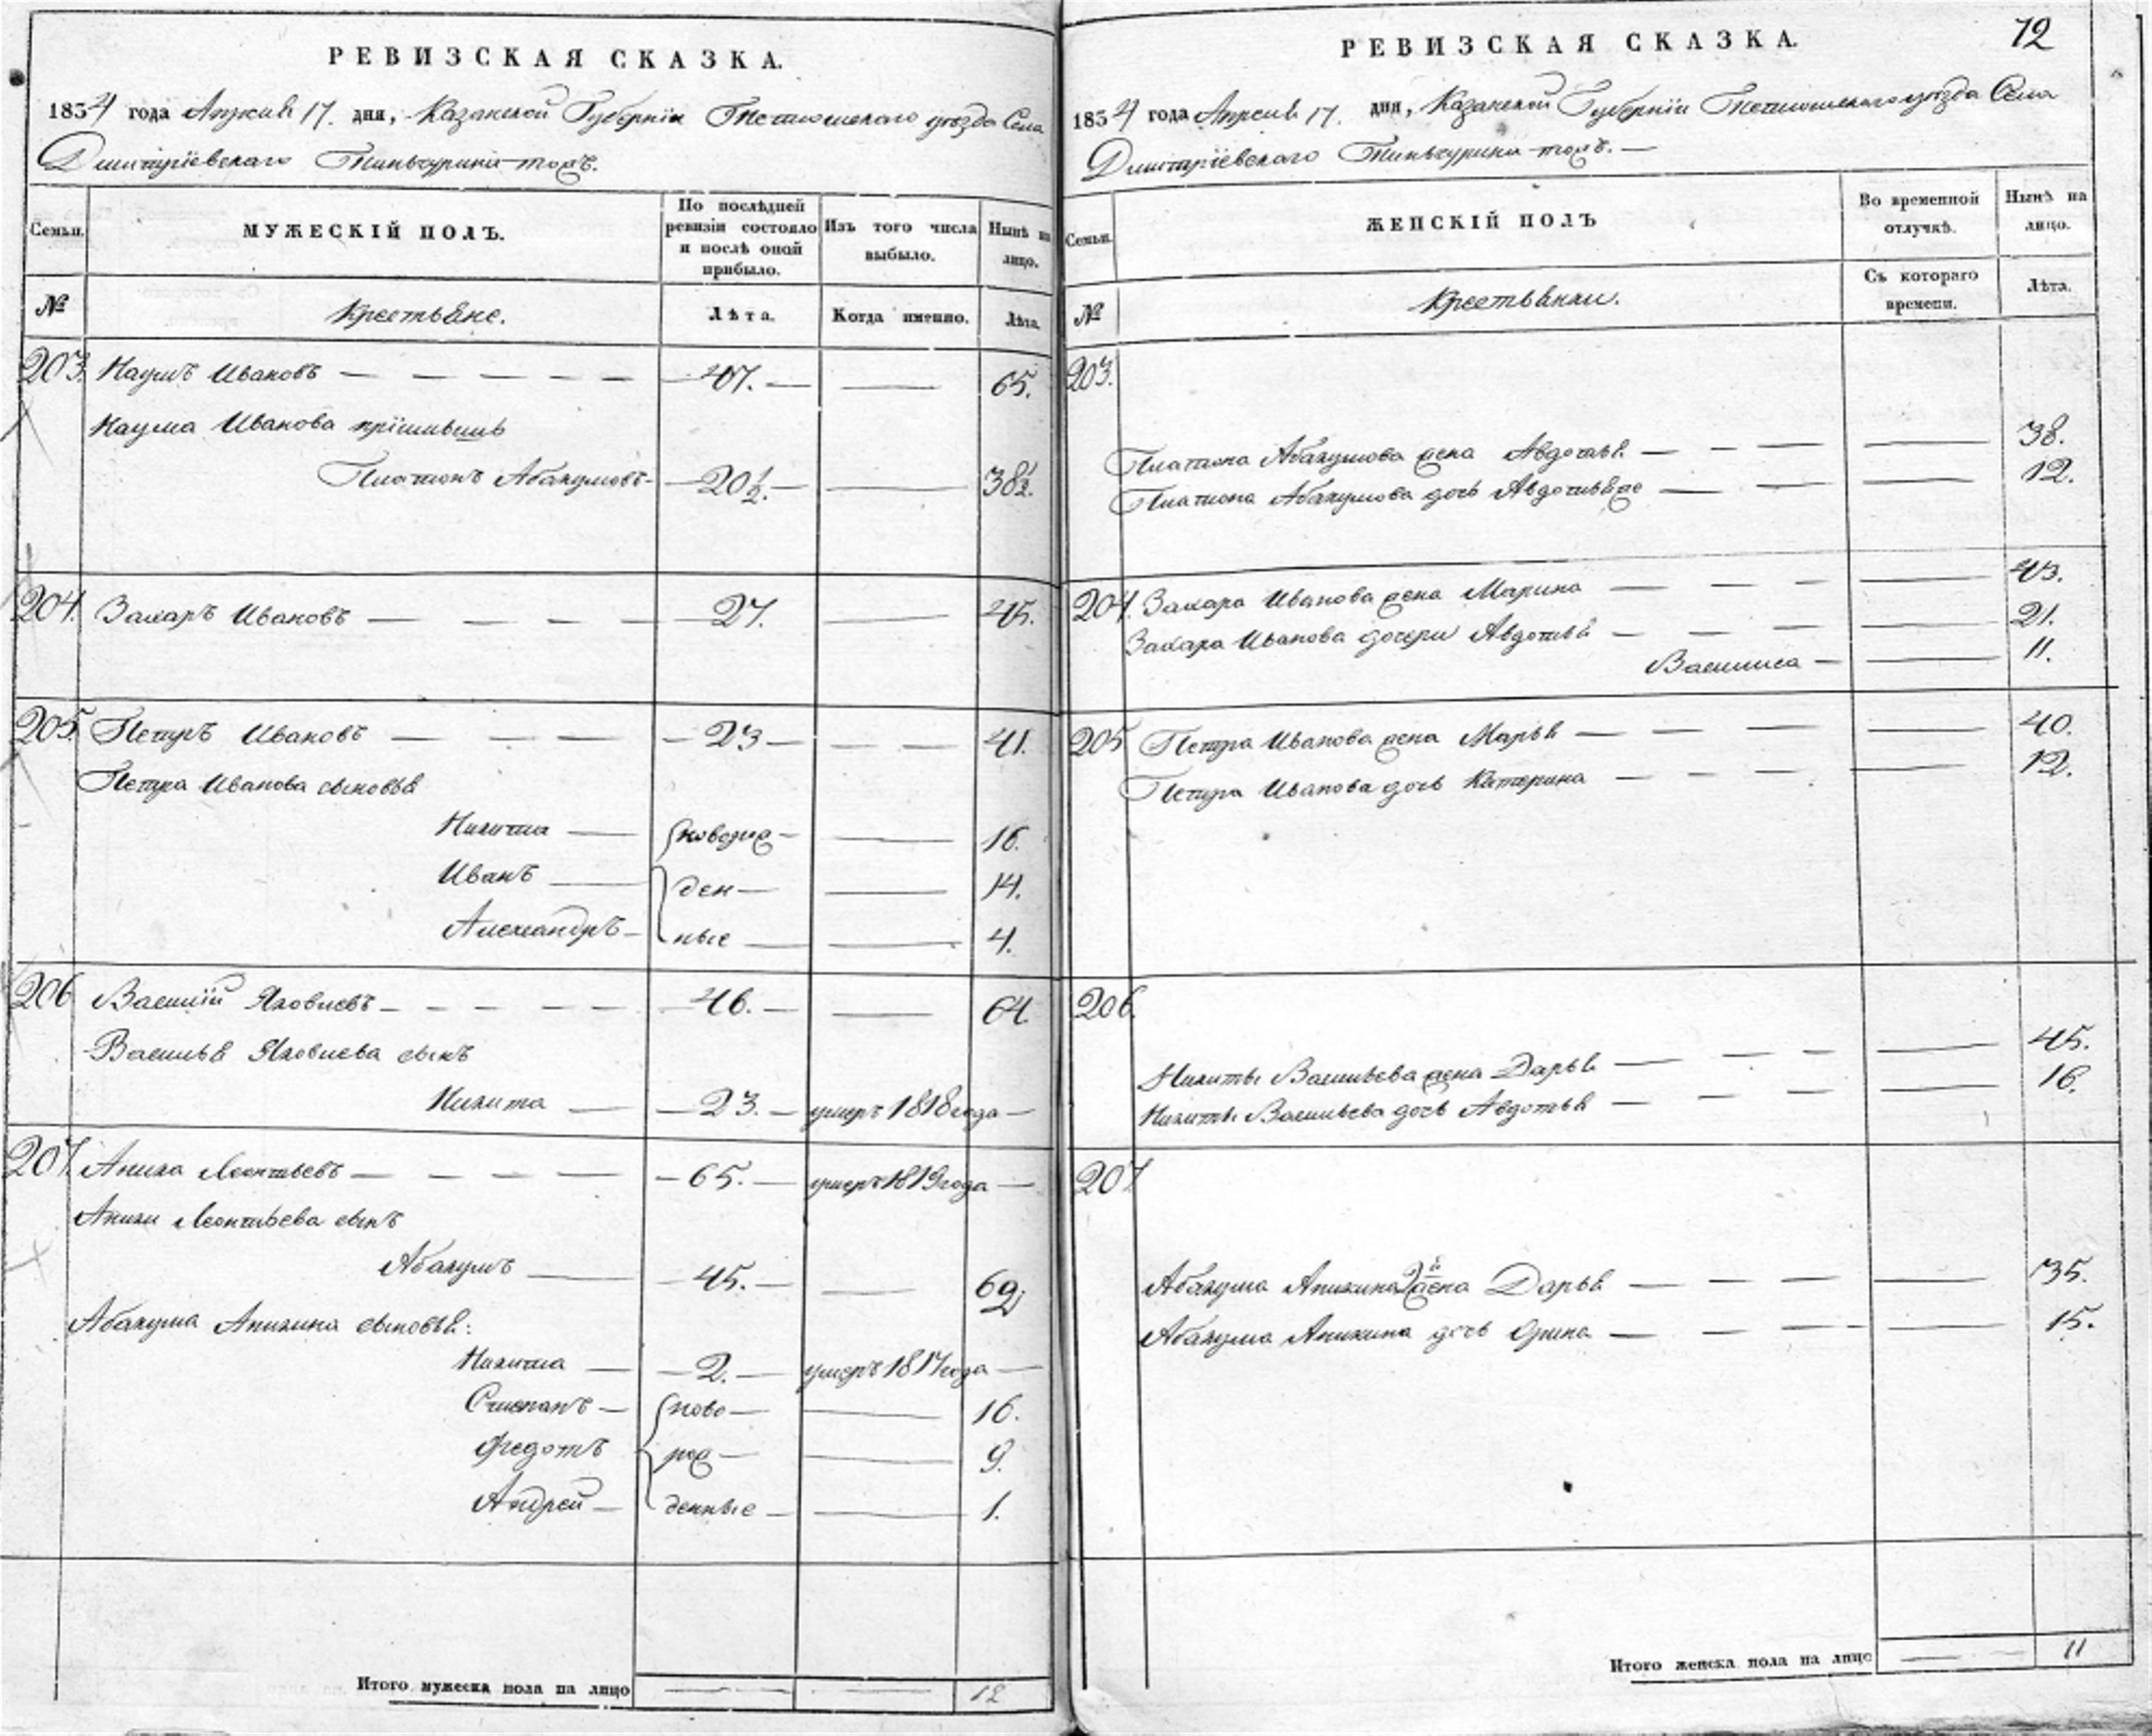 РЕВИЗСКАЯ СКАЗКА.
1834 года Апреля 17. дня, Казанской Губернiи Тетюшскаго уѣзда Села
Дмитрiевскаго Тиньчурина тожъ.
Семьи.
МУЖЕСКІЙ ПОЛЪ.
По послѣдней ревизіи состояло и послѣ оной прибыло.
Изъ того числа выбыло.
Нынѣ на лицо.
№
Крестьяне.
Лѣта.
Когда именно.
Лѣта.
203. Наумъ Ивановъ — 47. — 65.
Наума Иванова прiимышъ
Платонъ Абакумовъ — 20½. — 38½.
204. Захаръ Ивановъ — 27. — 45.
205. Петръ Ивановъ — 23 — 41.
Петра Иванова сыновья
Никита — новорож — 16.
Иванъ — ден — 14.
Александръ — ные — 4.
206 Василiй Яковлевъ — 46. — 64.
Василья Яковлева сынъ
Никита — 23. — умеръ 1818 года —
207. Аника Леонтьевъ — 65. — умеръ 1819 года —
Аники Леонтьева сынъ
Абакумъ — 45. — 62
Абакума Аникина сыновья:
Никита — 2. — умеръ 1817 года —
Степанъ — ново — 16.
Федотъ рож — 9.
Андрей — денные — 1.
Итого мужеска пола на лицо — — 12
РЕВИЗСКАЯ СКАЗКА.
12
1834 года Апреля 17. дня, Казанской Губернiи Тетюшскаго уѣзда Села
Дмитрiевскаго Тиньчурина тожъ. —
Семьи.
ЖЕНСКІЙ ПОЛЪ
Во временной отлучкѣ.
Нынѣ на лицо.
№
Крестьянки.
Съ котораго времени.
Лѣта.
203.
Платона Абакумова жена Авдотья — 38.
Платона Абакумова дочь Авдотья же — 12.
204. Захара Иванова жена Марина — 43.
Захара Иванова дочери Авдотья — 21.
Василиса — 11.
205 Петра Иванова жена Марья — 40.
Петра Иванова дочь Катерина — 12.
206.
Никиты Васильева жена Дарья — 45.
Никиты Васильева дочь Авдотья — 16.
207
Абакума Аникина 2я жена Дарья — 35.
Абакума Аникина дочь Орина — 15.
Итого женска пола на лицо — 11